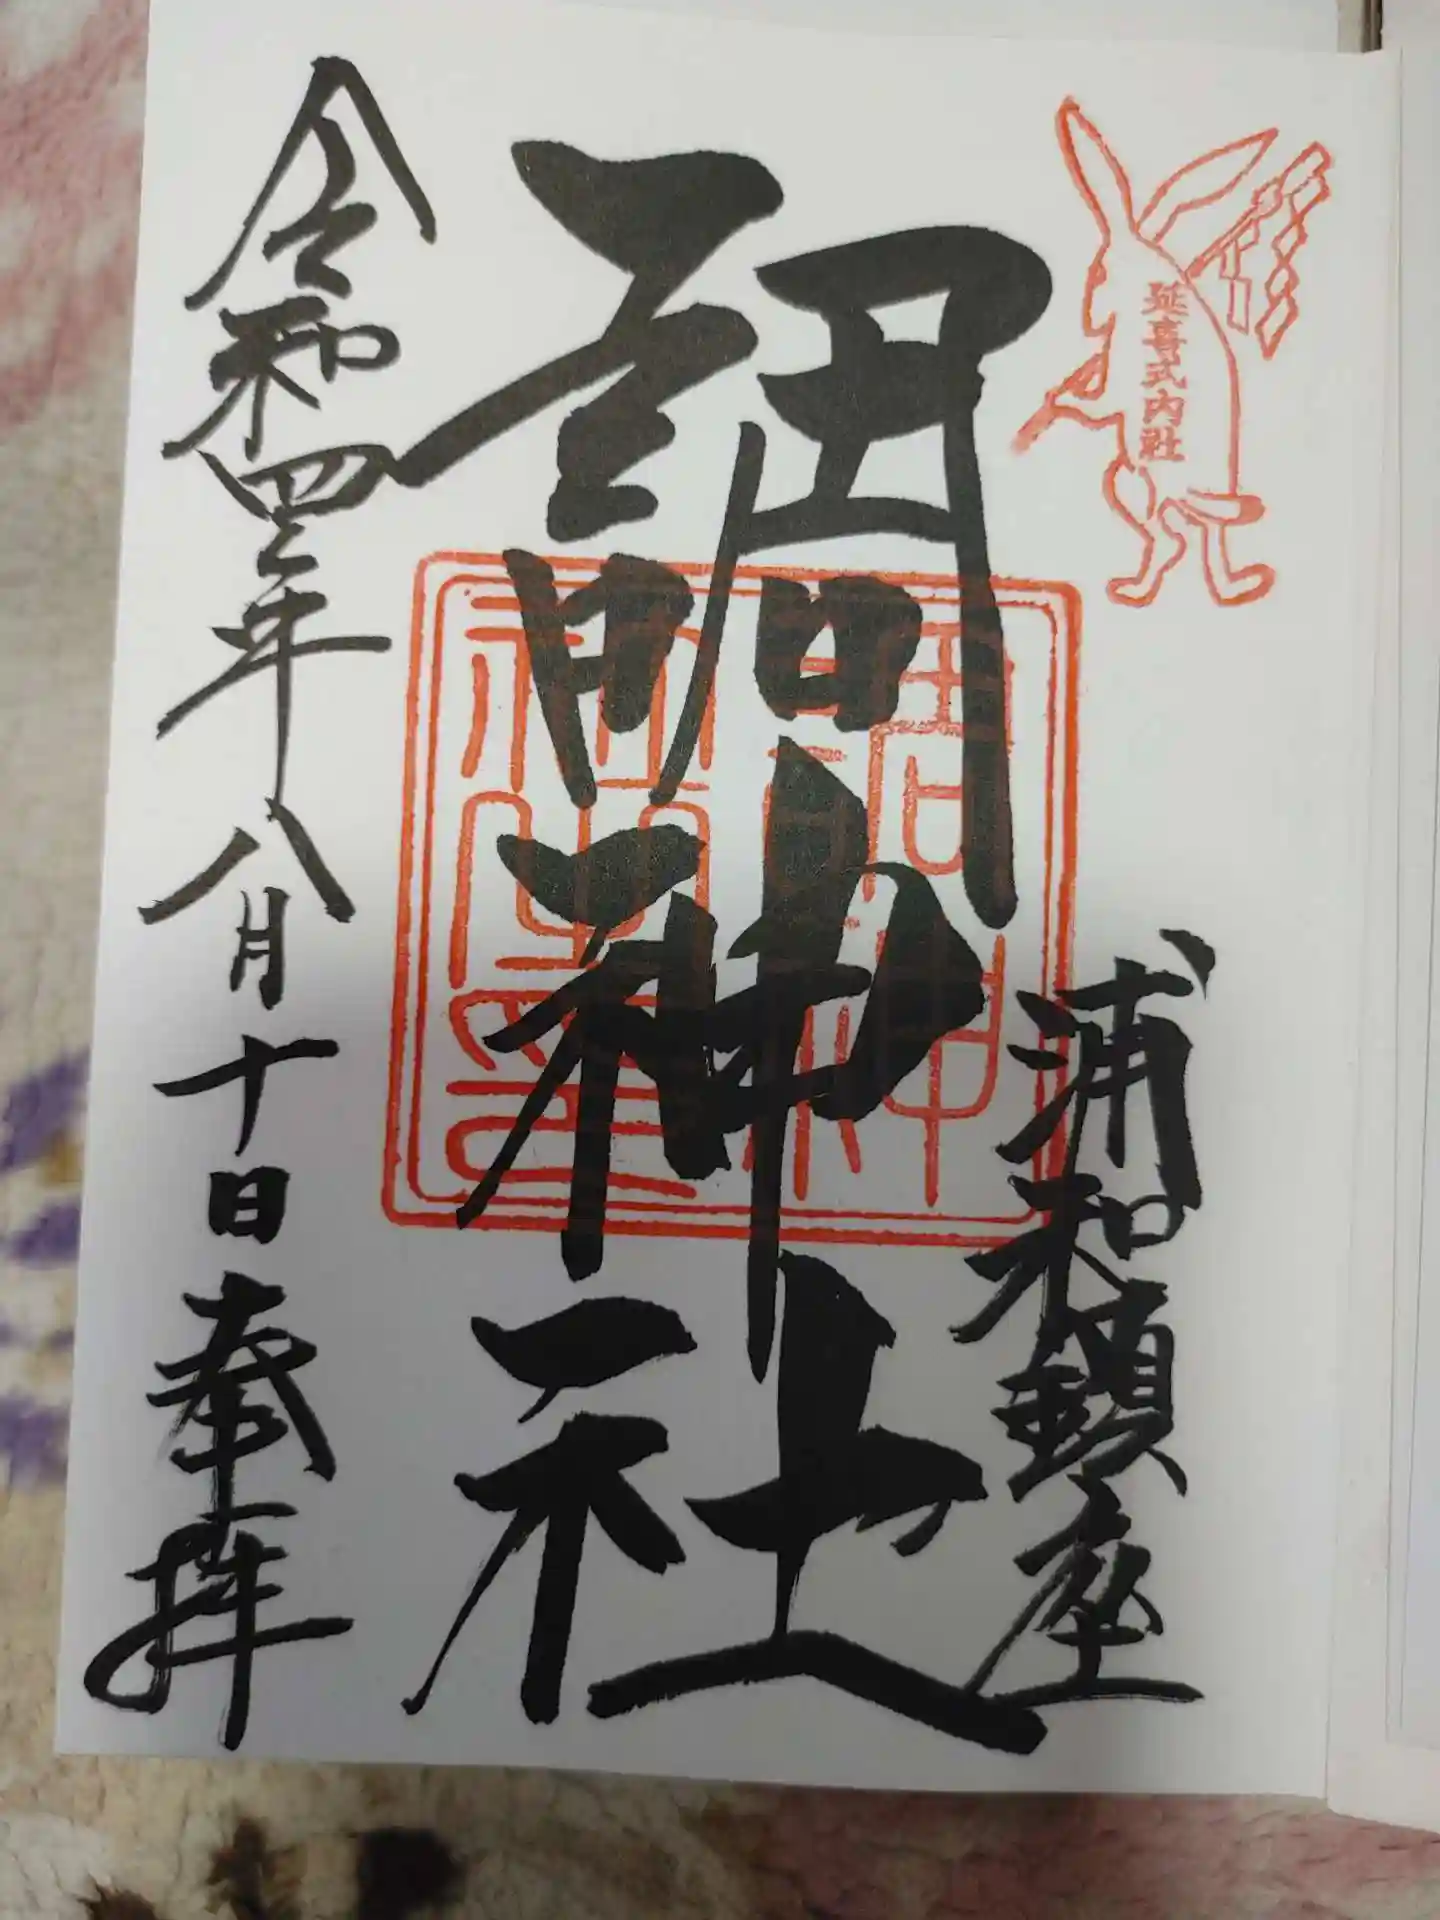 延喜式内社
浦和鎮座
調神社
調神
社之印
令和四年八月十日奉拝